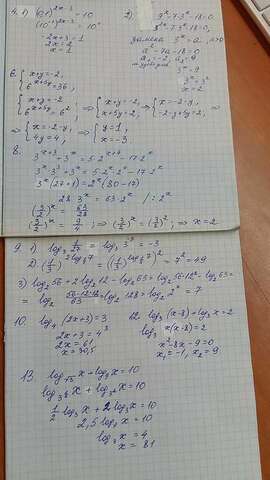 4. 1) (0,1)^{2x-3} = 10
(10^{-1})^{2x-3} = 10^1
-2x+3=1
2x=2
x=1
2) 3^{2x}-7·3^x-18=0
3^{2x}-7·3^x-18=0,
замена 3^x=a, a>0
a²-7a-18=0
a₁=-2, a₂=9
3^x=9
3^x=3²
x=2
6. {x+y=-2, 6^{x+5y}=36;
{x+y=-2, 6^{x+5y}=6²; ⇒ {x+y=-2, x+5y=2; ⇒ {x=-2-y, -2-y+5y=2; ⇒
⇒ {x=-2-y, 4y=4; ⇒ {y=1, x=-3
8.
3^{x+3}+3^x=5·2^{x+4}-17·2^x
3^x·3³+3^x=5·2^x·2⁴-17·2^x
3^x(27+1)=2^x(80-17)
28·3^x=63·2^x /:2^x
(3/2)^x=63/28
(3/2)^x=9/4; ⇒ (3/2)^x=(3/2)²; ⇒ x=2
9. 1) log₃ 1/27 = log₃ 3^{-3} = -3
2) (1/3)^{-2log₃7} = 7² = 49
3) log₂56+2log₂12-log₂63=log₂56·12²-log₂63=
=log₂ 56·12·12/63=log₂128=log₂2⁷=7
10. log₄(2x+3)=3
2x+3=4³
2x=61
x=30,5
12. log₃(x-8)+log₃x=2
log₃x(x-8)=2
x²-8x-9=0
x₁=-1, x₂=9
13. log_{√3}x+log₉x=10
½log₃x+2log₃x=10
2,5log₃x=10
log₃x=4
x=81